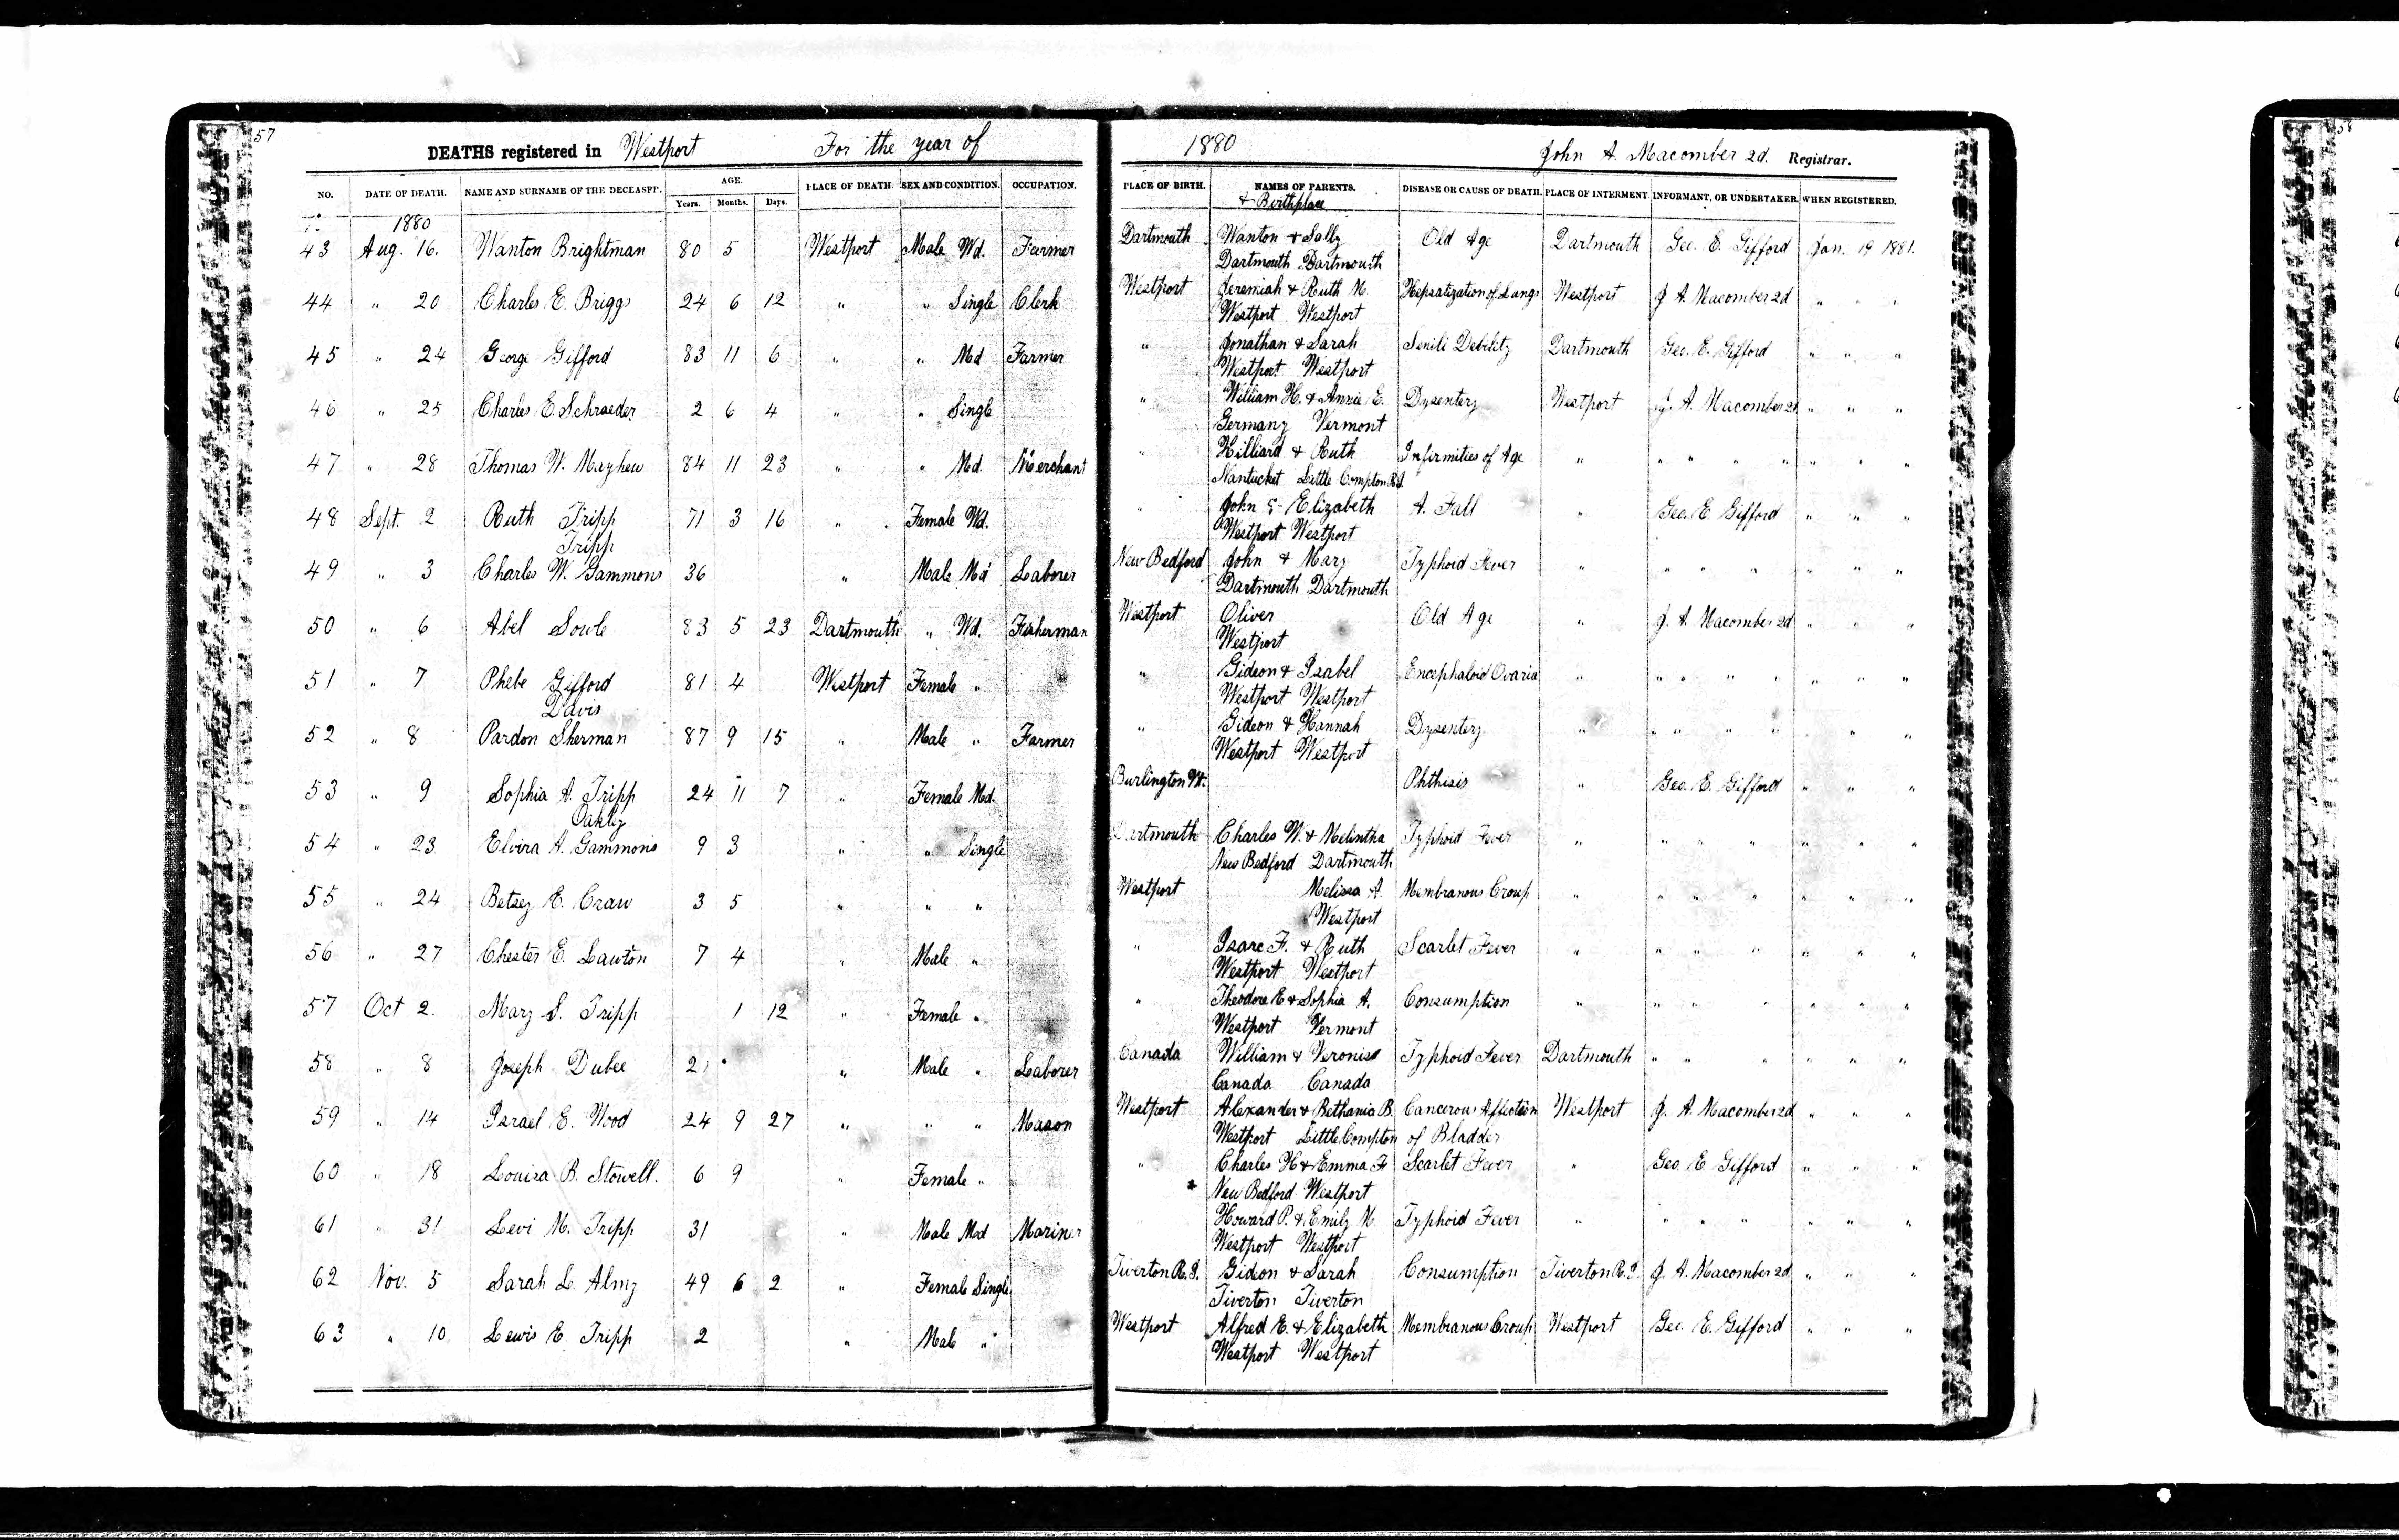 57
DEATHS registered in Westport For the year of 1880 John A. Macomber 2d. Registrar.
NO. DATE OF DEATH. NAME AND SURNAME OF THE DECEASED. AGE. Years. Months. Days. PLACE OF DEATH SEX AND CONDITION. OCCUPATION. PLACE OF BIRTH. NAMES OF PARENTS. & Birthplace DISEASE OR CAUSE OF DEATH. PLACE OF INTERMENT INFORMANT, OR UNDERTAKER. WHEN REGISTERED.
1880
43 Aug. 16. Wanton Brightman 80 5 Westport Male Wd. Farmer Dartmouth Wanton & Sally Old Age Dartmouth Geo. E. Gifford Jan. 19 1881.
Dartmouth Dartmouth
44 " 20 Charles E. Briggs 24 6 12 " " Single Clerk Westport Jeremiah & Ruth M. Hepsatization of Lungs Westport J. A. Macomber 2d " " "
Westport Westport
45 " 24 George Gifford 83 11 6 " " Md Farmer " Jonathan & Sarah Senili Debility Dartmouth Geo. E. Gifford " " "
Westport Westport
46 " 25 Charles E. Schraeder 2 6 4 " " Single " William H. & Annie E. Dysentery Westport J. A. Macomber 2d " " "
Germany Vermont
47 " 28 Thomas W. Mayhew 84 11 23 " " Md. Merchant " Hilliard & Ruth Infirmities of Age " " " " " " " "
Nantucket Little Compton R.I.
48 Sept. 2 Ruth Tripp 71 3 16 " Female Wd. " John & Elizabeth A. Fall " Geo. E. Gifford " " "
Tripp Westport Westport
49 " 3 Charles W. Gammons 36 " Male Md Laborer New Bedford John & Mary Typhoid Fever " " " " " " "
Dartmouth Dartmouth
50 " 6 Abel Sowle 83 5 23 Dartmouth " Wd. Fisherman Westport Oliver Old Age " J. A. Macomber 2d " " "
Westport
51 " 7 Phebe Gifford 81 4 Westport Female " " Gideon & Isabel Encephaloid Ovaria " " " " " " " "
Davis Westport Westport
52 " 8 Pardon Sherman 87 9 15 " Male " Farmer " Gideon & Hannah Dysentery " " " " " " "
Westport Westport
53 " 9 Sophia A. Tripp 24 11 7 " Female Md. Burlington Vt. Phthisis " Geo. E. Gifford " " "
Oakly
54 " 23 Elvira A. Gammons 9 3 " " Single Dartmouth Charles W. & Melintha Typhoid Fever " " " " " " "
New Bedford Dartmouth
55 " 24 Betsey E. Craw 3 5 " " " Westport Melissa A. Membranous Croup " " " " " " " "
Westport
56 " 27 Chester E. Lawton 7 4 " Male " " Isaac F. & Ruth Scarlet Fever " " " " " " "
Westport Westport
57 Oct 2. Mary S. Tripp 1 12 " Female " " Theodore E & Sophia A. Consumption " " " " " " "
Westport Vermont
58 " 8 Joseph Dubee 21 " Male " Laborer Canada William & Veronise Typhoid Fever Dartmouth " " " " " "
Canada Canada
59 " 14 Israel E. Wood 24 9 27 " " " Mason Westport Alexander & Bethania B. Cancerous Affection Westport J. A. Macomber 2d " " "
Westport Little Compton of Bladder
60 " 18 Louisa B. Stowell. 6 9 " Female " " Charles H & Emma F Scarlet Fever " Geo. E. Gifford " " "
New Bedford Westport
61 " 31 Levi M. Tripp 31 " Male Md Mariner Howard P. & Emily M. Typhoid Fever " " " " " " "
Westport Westport
62 Nov. 5 Sarah L. Almy 49 6 2 " Female Single Tiverton R.I. Gideon & Sarah Consumption Tiverton R.I. J. A. Macomber 2d " " "
Tiverton Tiverton
63 " 10 Lewis E Tripp 2 " Male " Westport Alfred E. & Elizabeth Membranous Croup Westport Geo. E. Gifford " " "
Westport Westport
58